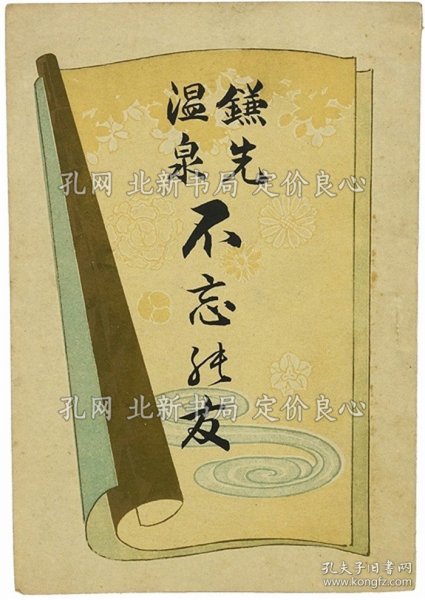 鎌先
温泉
不忘能友
孔网 北新书局 定价良心
孔网 北新书局 定价良心
孔夫子旧书网
www.kongfz.com